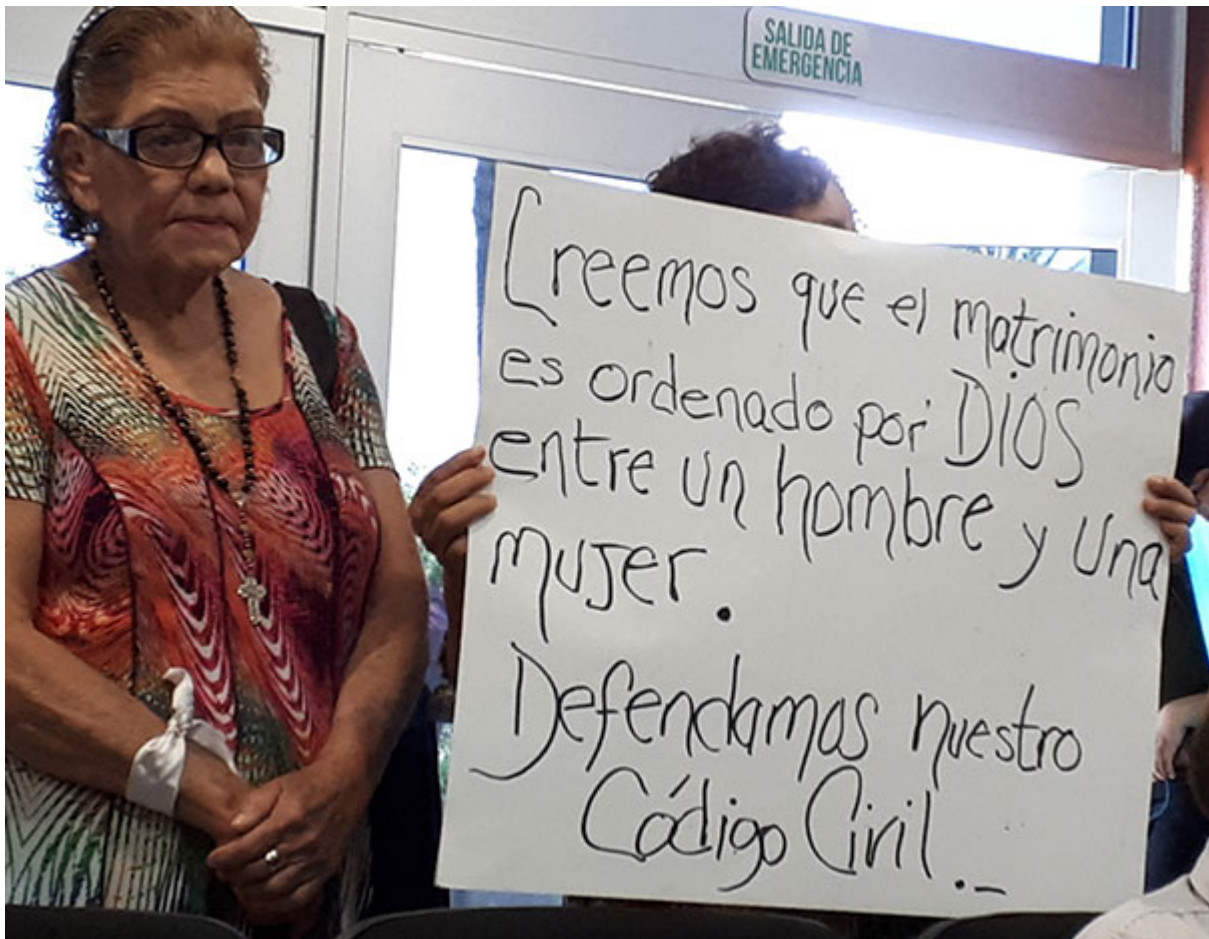 SALIDA DE
EMERGENCIA
Creemos que el matrimonio
es ordenado por DIOS
entre un hombre y una
mujer.
Defendamos nuestro
Código Civil.-